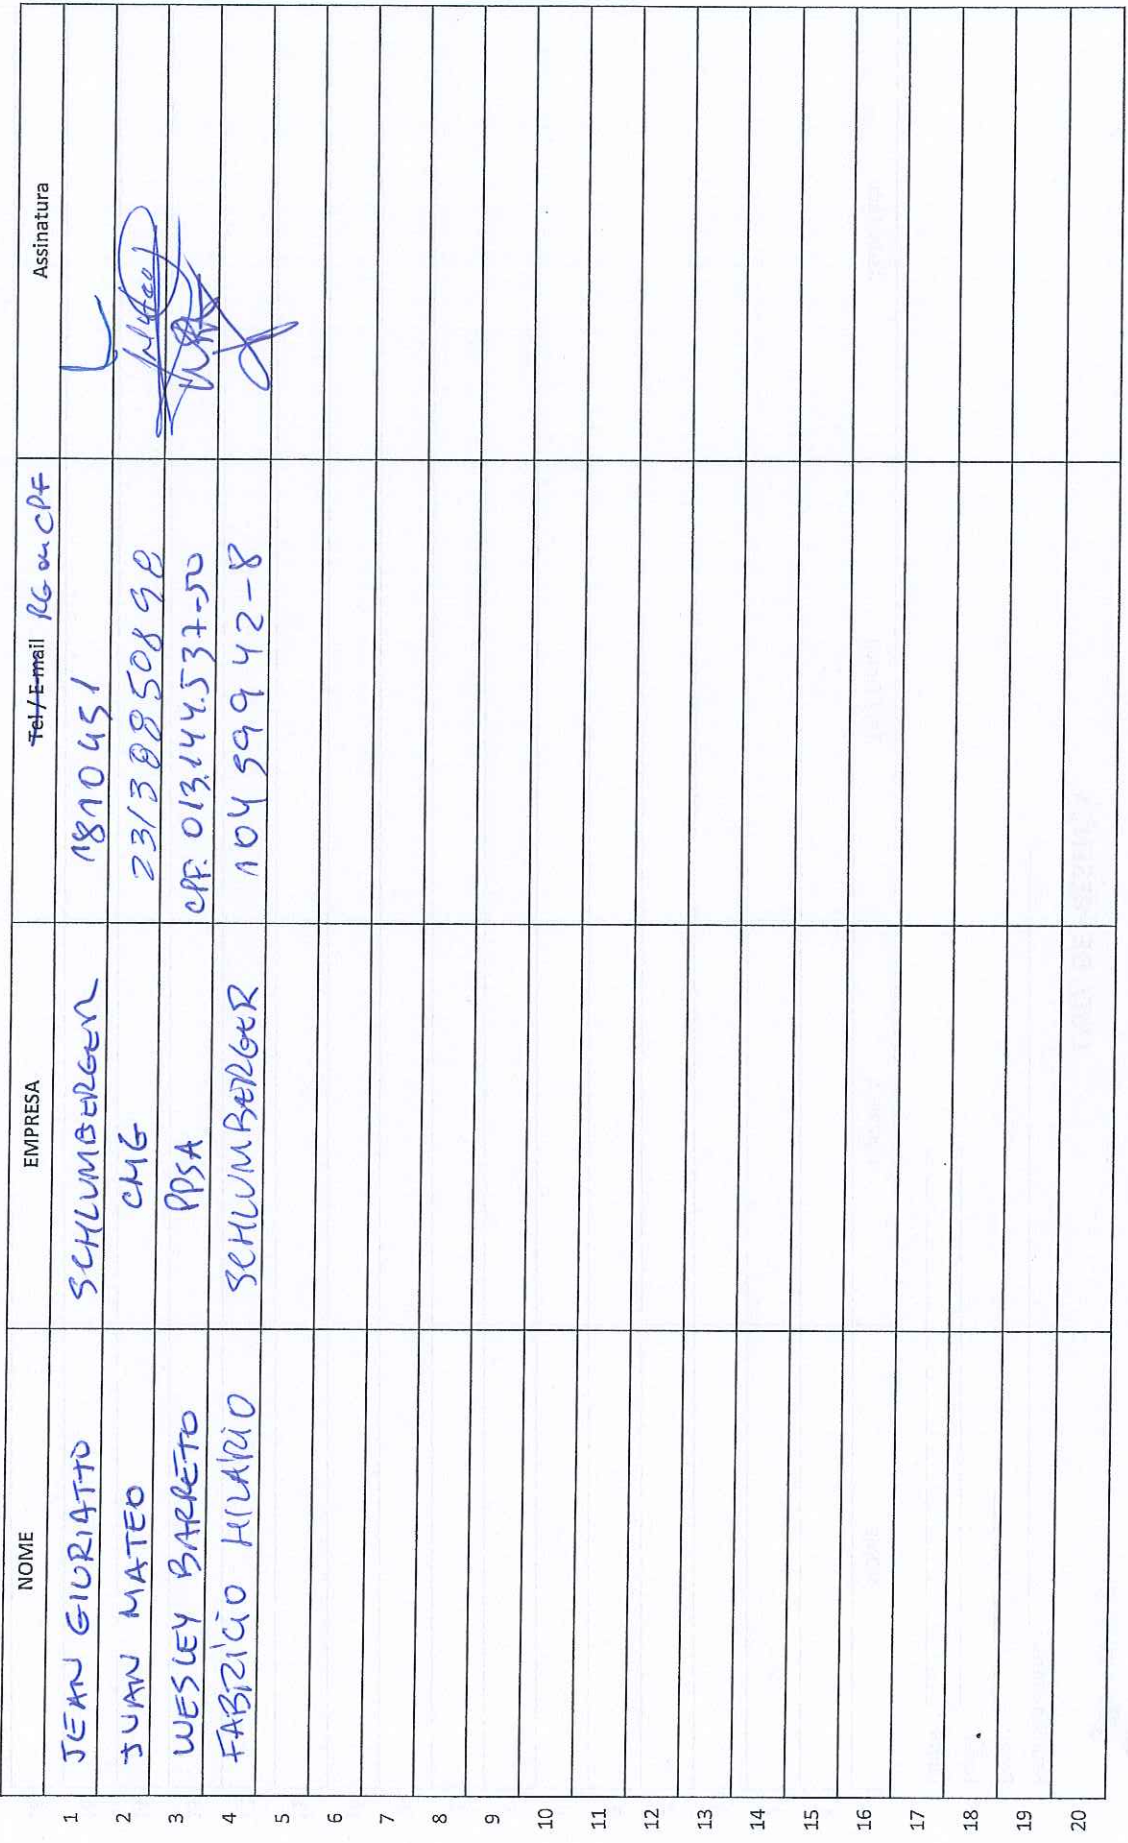 NOME EMPRESA Tel / E-mail RG ou CPF Assinatura
1 JEAN GIURIATTO SCHLUMBERGER 1810451
2 JUAN MATEO CMG 23138850898
3 WESLEY BARRETO PPSA CPF. 013.144.537-50
4 FABRÍCIO HILÁRIO SCHLUMBERGER 10459942-8
5
6
7
8
9
10
11
12
13
14
15
16
17
18
19
20